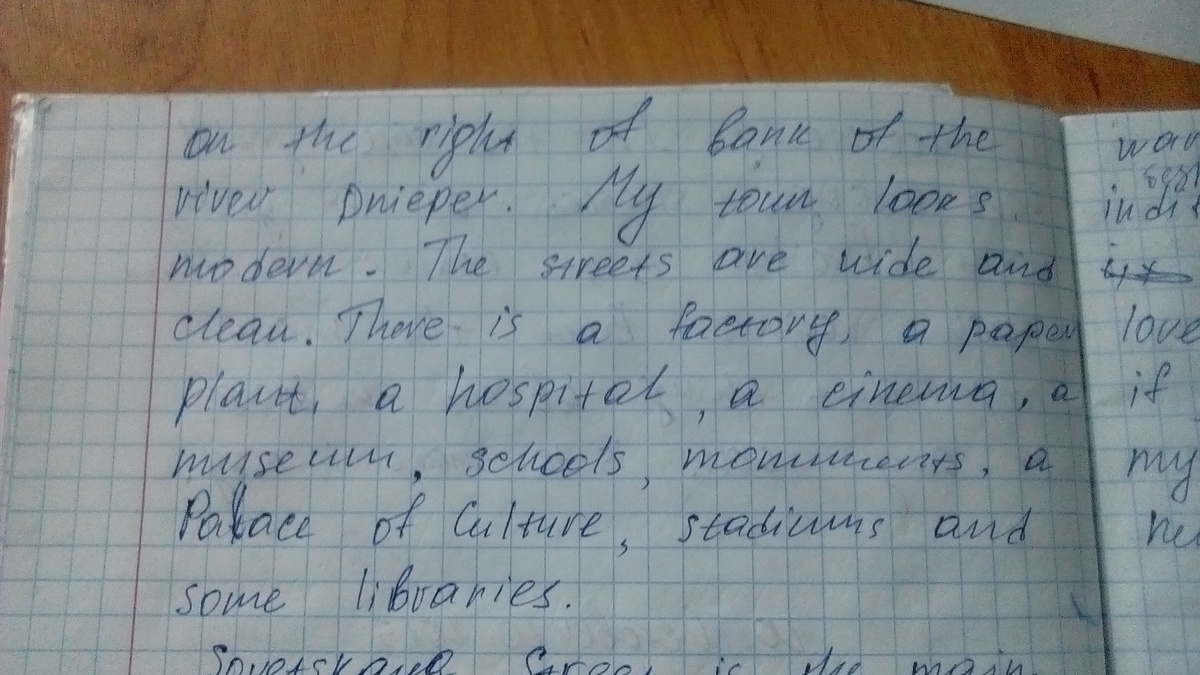 on the right of bank of the
river Dnieper. My town looks
modern. The streets are wide and
clean. There is a factory, a paper
plant, a hospital, a cinema, a
museum, schools, monuments, a
Palace of Culture, stadiums and
some libraries.
Sovetskaya Street is the main
indit
love
if
my